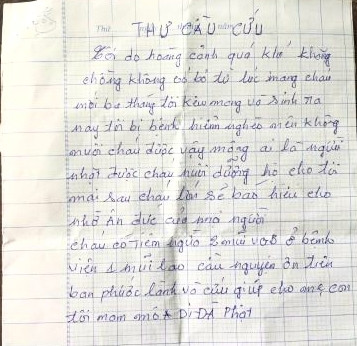 Thứ THƯ CẦU CỨU
Tôi do hoàng cảnh quá khổ không
chồng không có bố từ lúc mang chau
mới ba tháng tôi kêu mang và sinh ra
nay tôi bị bệnh hiểm nghèo nên không
nuôi chau được vậy mong ai là người
nhặt được chau nuôi dưỡng hộ cho tôi
mai sau chau lớn sẽ báo hiếu cho
nhờ ân đức của người
chau có tiêm ngừa 2 mũi ở bệnh
viện 1 mũi lao cầu nguyện ơn trên
ban phước lành và cứu giúp cho mẹ con
tôi mam mô A Di Đà Phật